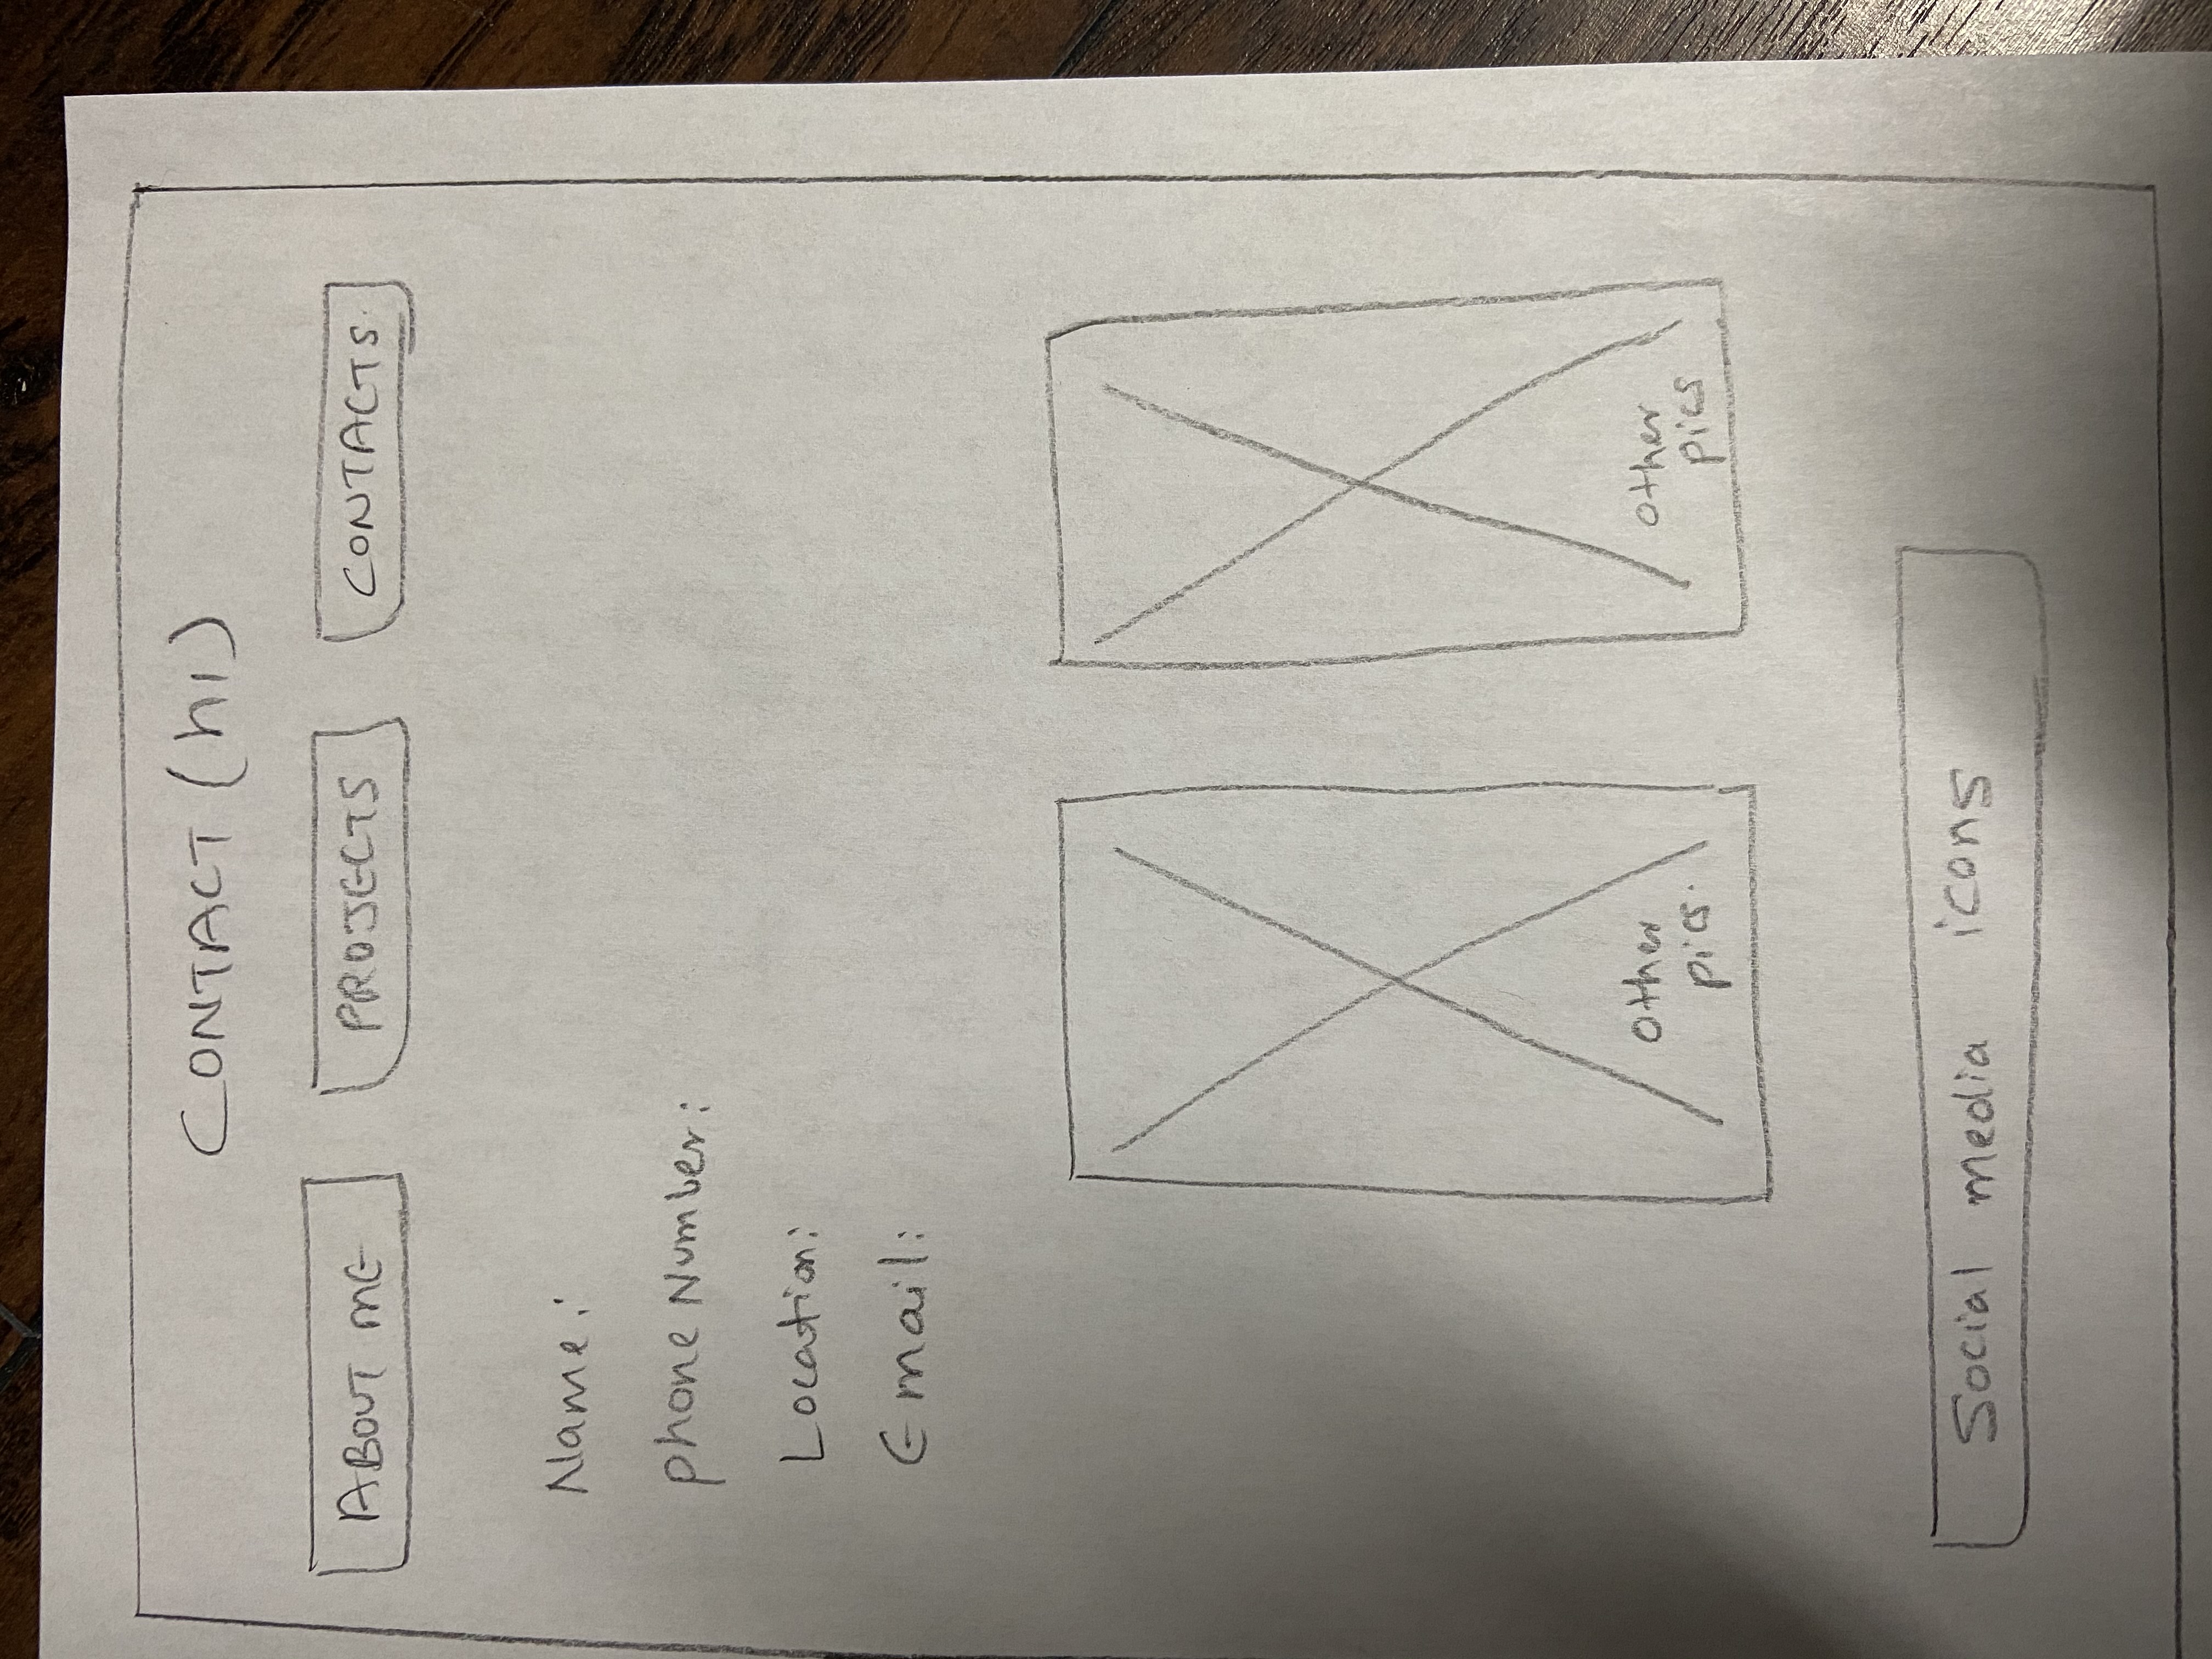 CONTACT (h1)
ABOUT ME
PROJECTS
CONTACTS.
Name:
phone Number:
Location:
Email:
Other
pics.
Other
pics
Social media icons